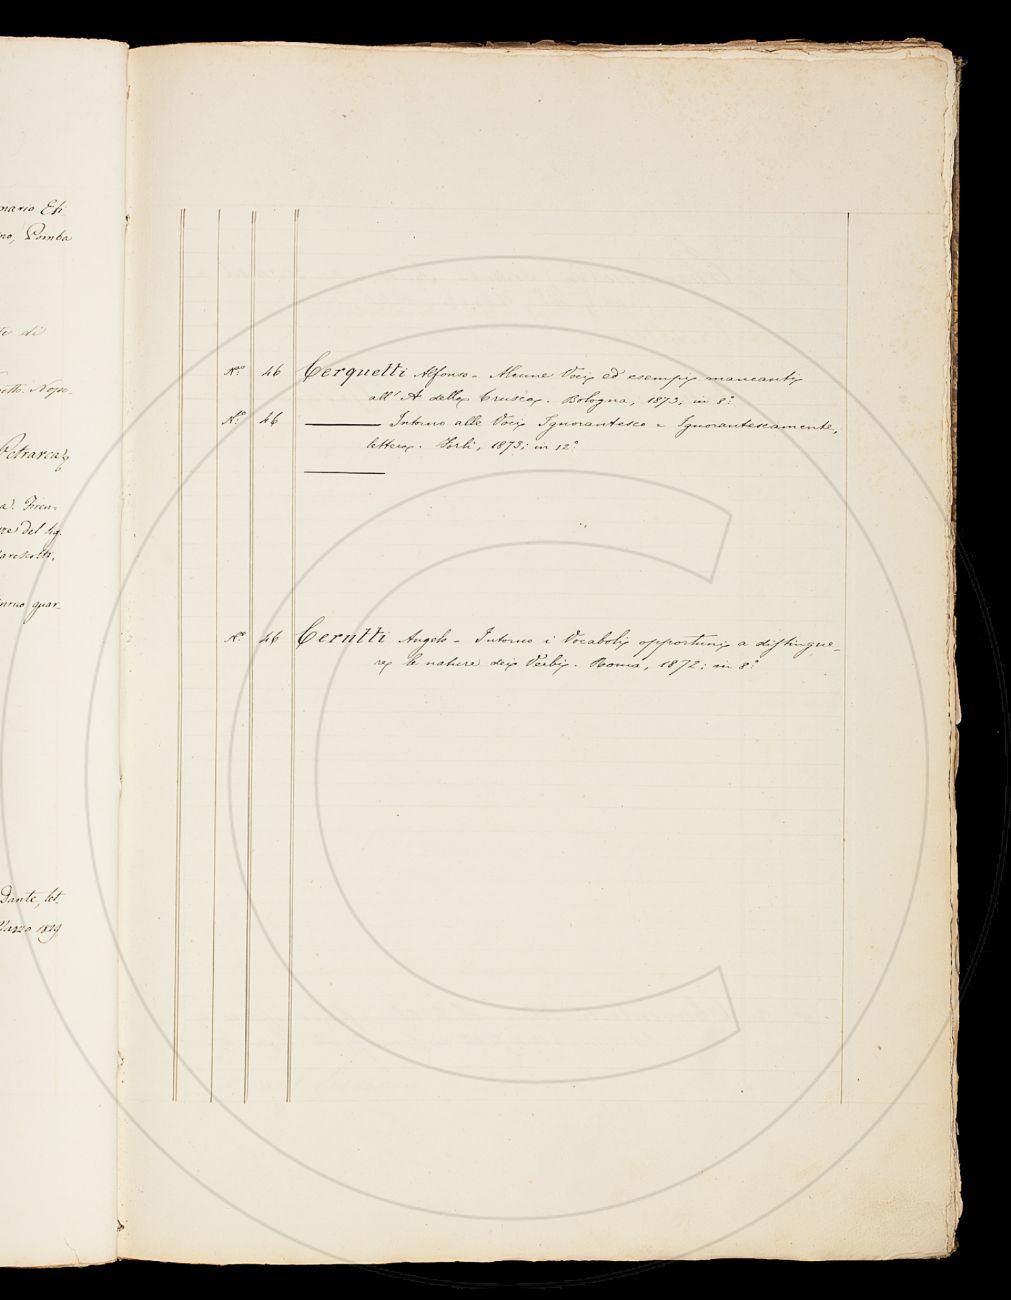 nario Eti
no, Pomba
te di
Petrarca
a. Firen-
re del Sig.
Marescotti,
guar-
Dante, let.
Marzo 1829
N.º 46 Cerquetti Alfonso - Alcune Voci ed esempi mancanti
all' A della Crusca. Bologna, 1873, in 8.º
N.º 46 ——— Intorno alle Voci Ignorantesco e Ignorantescamente,
lettera. Forlì, 1873; in 12º
N.º 46 Cerutti Angelo - Intorno i Vocaboli opportuni a distingue-
re le nature dei Verbi. Roma, 1872; in 8.º